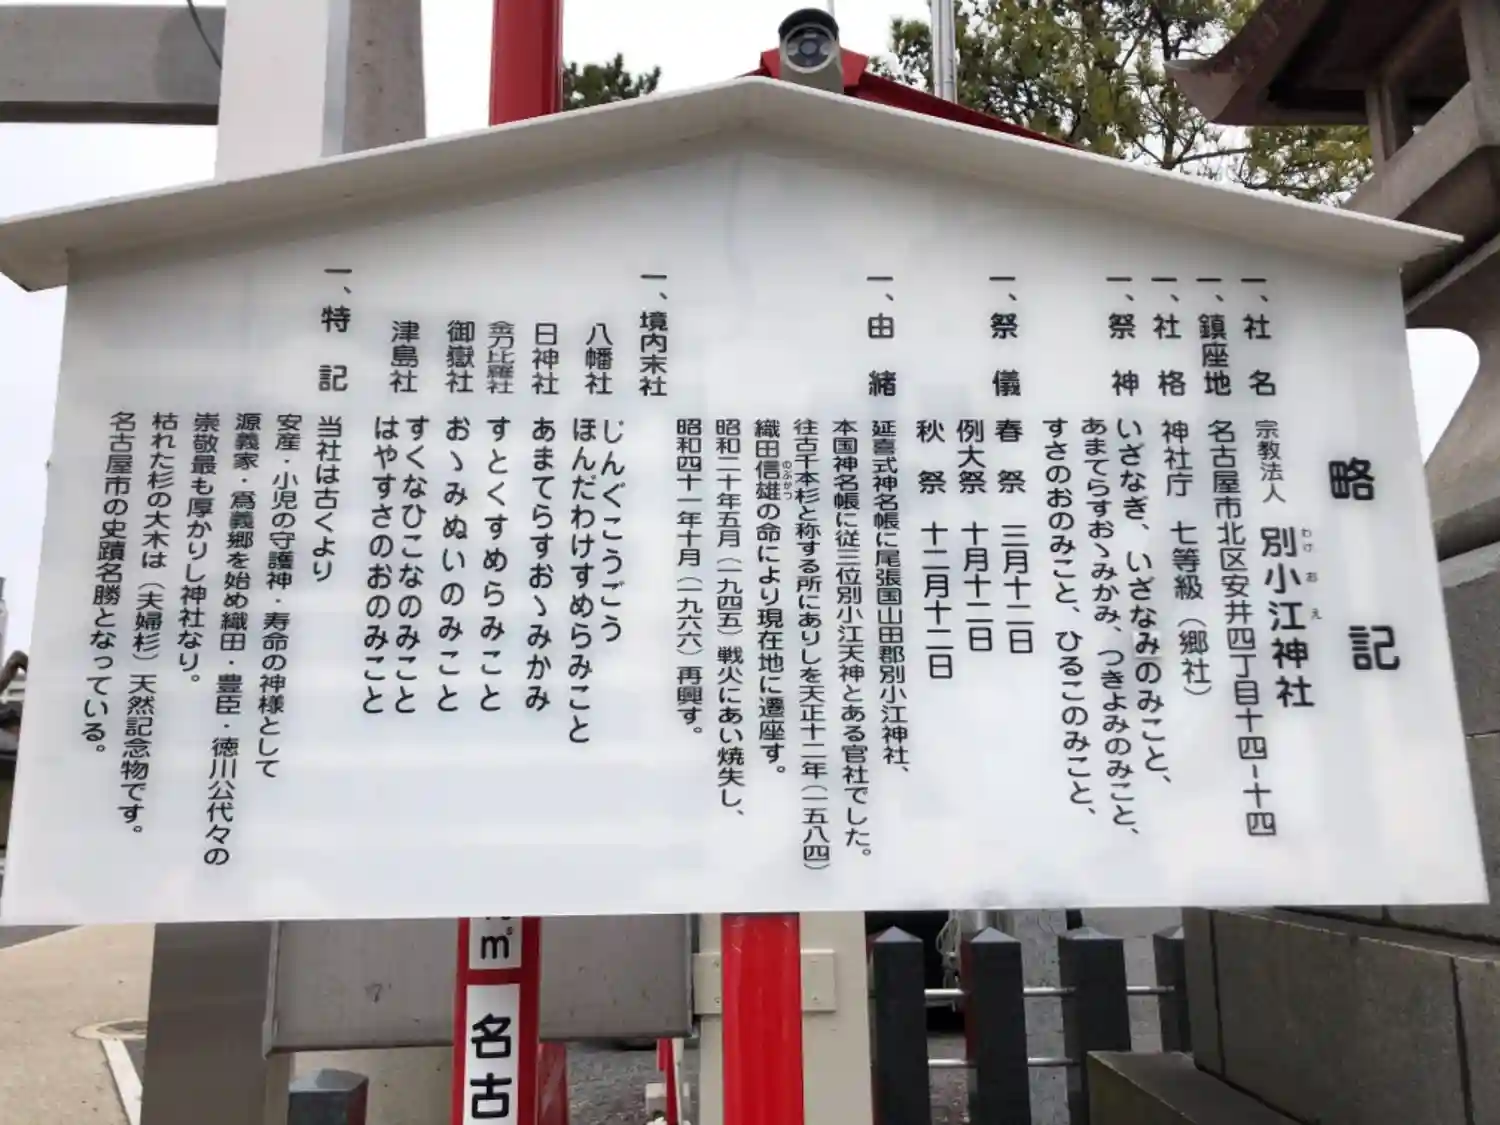 略記
一、社名 宗教法人 別小江神社
わけおえ
一、鎮座地 名古屋市北区安井四丁目十四-十四
一、社格 神社庁 七等級(郷社)
一、祭神 いざなぎ、いざなみのみこと、
あまてらすおゝみかみ、つきよみのみこと、
すさのおのみこと、ひるこのみこと、
一、祭儀 春祭 三月十二日
例大祭 十月十二日
秋祭 十二月十二日
一、由緒 延喜式神名帳に尾張国山田郡別小江神社、
本国神名帳に従三位別小江天神とある官社でした。
往古千本杉と称する所にありしを天正十二年(一五八四)
織田信雄の命により現在地に遷座す。
のぶかつ
昭和二十年五月(一九四五)戦火にあい焼失し、
昭和四十一年十月(一九六六)再興す。
一、境内末社
八幡社 じんぐこうごう
ほんだわけすめらみこと
日神社 あまてらすおゝみかみ
金刀比羅社 すとくすめらみこと
御嶽社 おゝみぬいのみこと
すくなひこなのみこと
津島社 はやすさのおのみこと
一、特記 当社は古くより
安産・小児の守護神・寿命の神様として
源義家・爲義郷を始め織田・豊臣・徳川公代々の
崇敬最も厚かりし神社なり。
枯れた杉の大木は(夫婦杉)天然記念物です。
名古屋市の史蹟名勝となっている。
m
名古